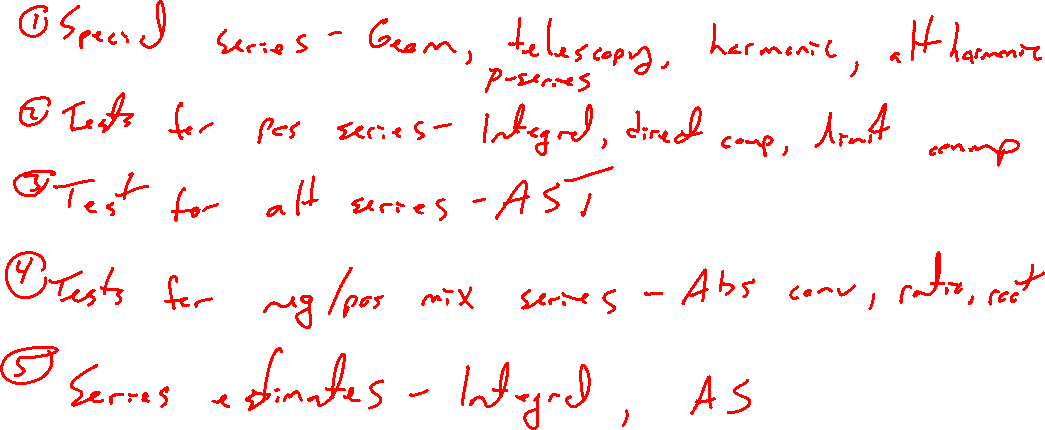 ① Special series - Geom, telescoping, harmonic, alt harmonic
p-series
② Tests for pos series - Integral, direct comp, limit comp
③ Test for alt series - AST
④ Tests for neg/pos mix series - Abs conv, ratio, root
⑤ Series estimates - Integral, AS